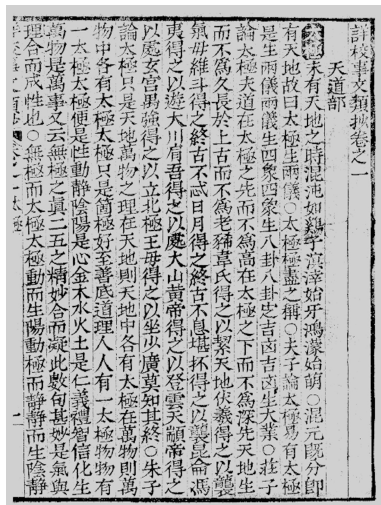 計校事文類抄卷之一
天道部
太極
未有天地之時混沌如雞子溟涬始牙鴻濛始萌○混元旣分卽
有天地故曰太極生兩儀○太極極盡之稱○夫子論太極易有太極
是生兩儀兩儀生四象四象生八卦八卦定吉凶吉凶生大業○莊子
論太極夫道在太極之先而不爲高在太極之下而不爲深先天地生
而不爲久長於上古而不爲老豨韋氏得之以挈天地伏羲得之以襲
氣母維斗得之終古不忒日月得之終古不息堪抔得之以襲崑侖馮
夷得之以遊大川肩吾得之以處大山黃帝得之以登雲天顓帝得之
以處玄宮禺強得之以立北極王母得之以坐少廣莫知其終○朱子
論太極只是天地萬物之理在天地則天地中各有太極在萬物則萬
物中各有太極太極只是箇極好至善底道理人人有一太極物物有
一太極太極便是性動靜陰陽是心金木水火土是仁義禮智信化生
萬物是萬事又云無極之眞二五之精妙合而凝此數句甚妙是氣與
理合而成性也○無極而太極太極動而生陽動極而靜靜而生陰靜